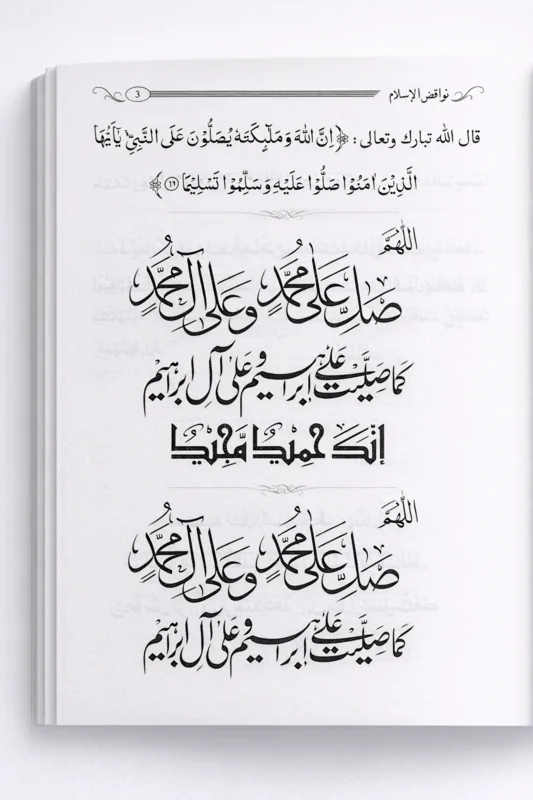 نواقض الإسلام
3
قال الله تبارك وتعالى : ﴿ اِنَّ اللهَ وَ مَلٰٓئِكَتَهٗ يُصَلُّوْنَ عَلَى النَّبِيِّ يٰٓاَيُّهَا
الَّذِيْنَ اٰمَنُوْا صَلُّوْا عَلَيْهِ وَسَلِّمُوْا تَسْلِيْمًا ﴾
اللهُمَّ
صَلِّ عَلَى مُحَمَّدٍ وَعَلَى آلِ مُحَمَّدٍ
كَمَا صَلَّيْتَ عَلَى إِبْرَاهِيمَ وَعَلَى آلِ إِبْرَاهِيمَ
إنَّكَ حَمِيْدٌ مَّجِيْدٌ
اللهُمَّ
صَلِّ عَلَى مُحَمَّدٍ وَعَلَى آلِ مُحَمَّدٍ
كَمَا صَلَّيْتَ عَلَى إِبْرَاهِيمَ وَعَلَى آلِ إِبْرَاهِيمَ